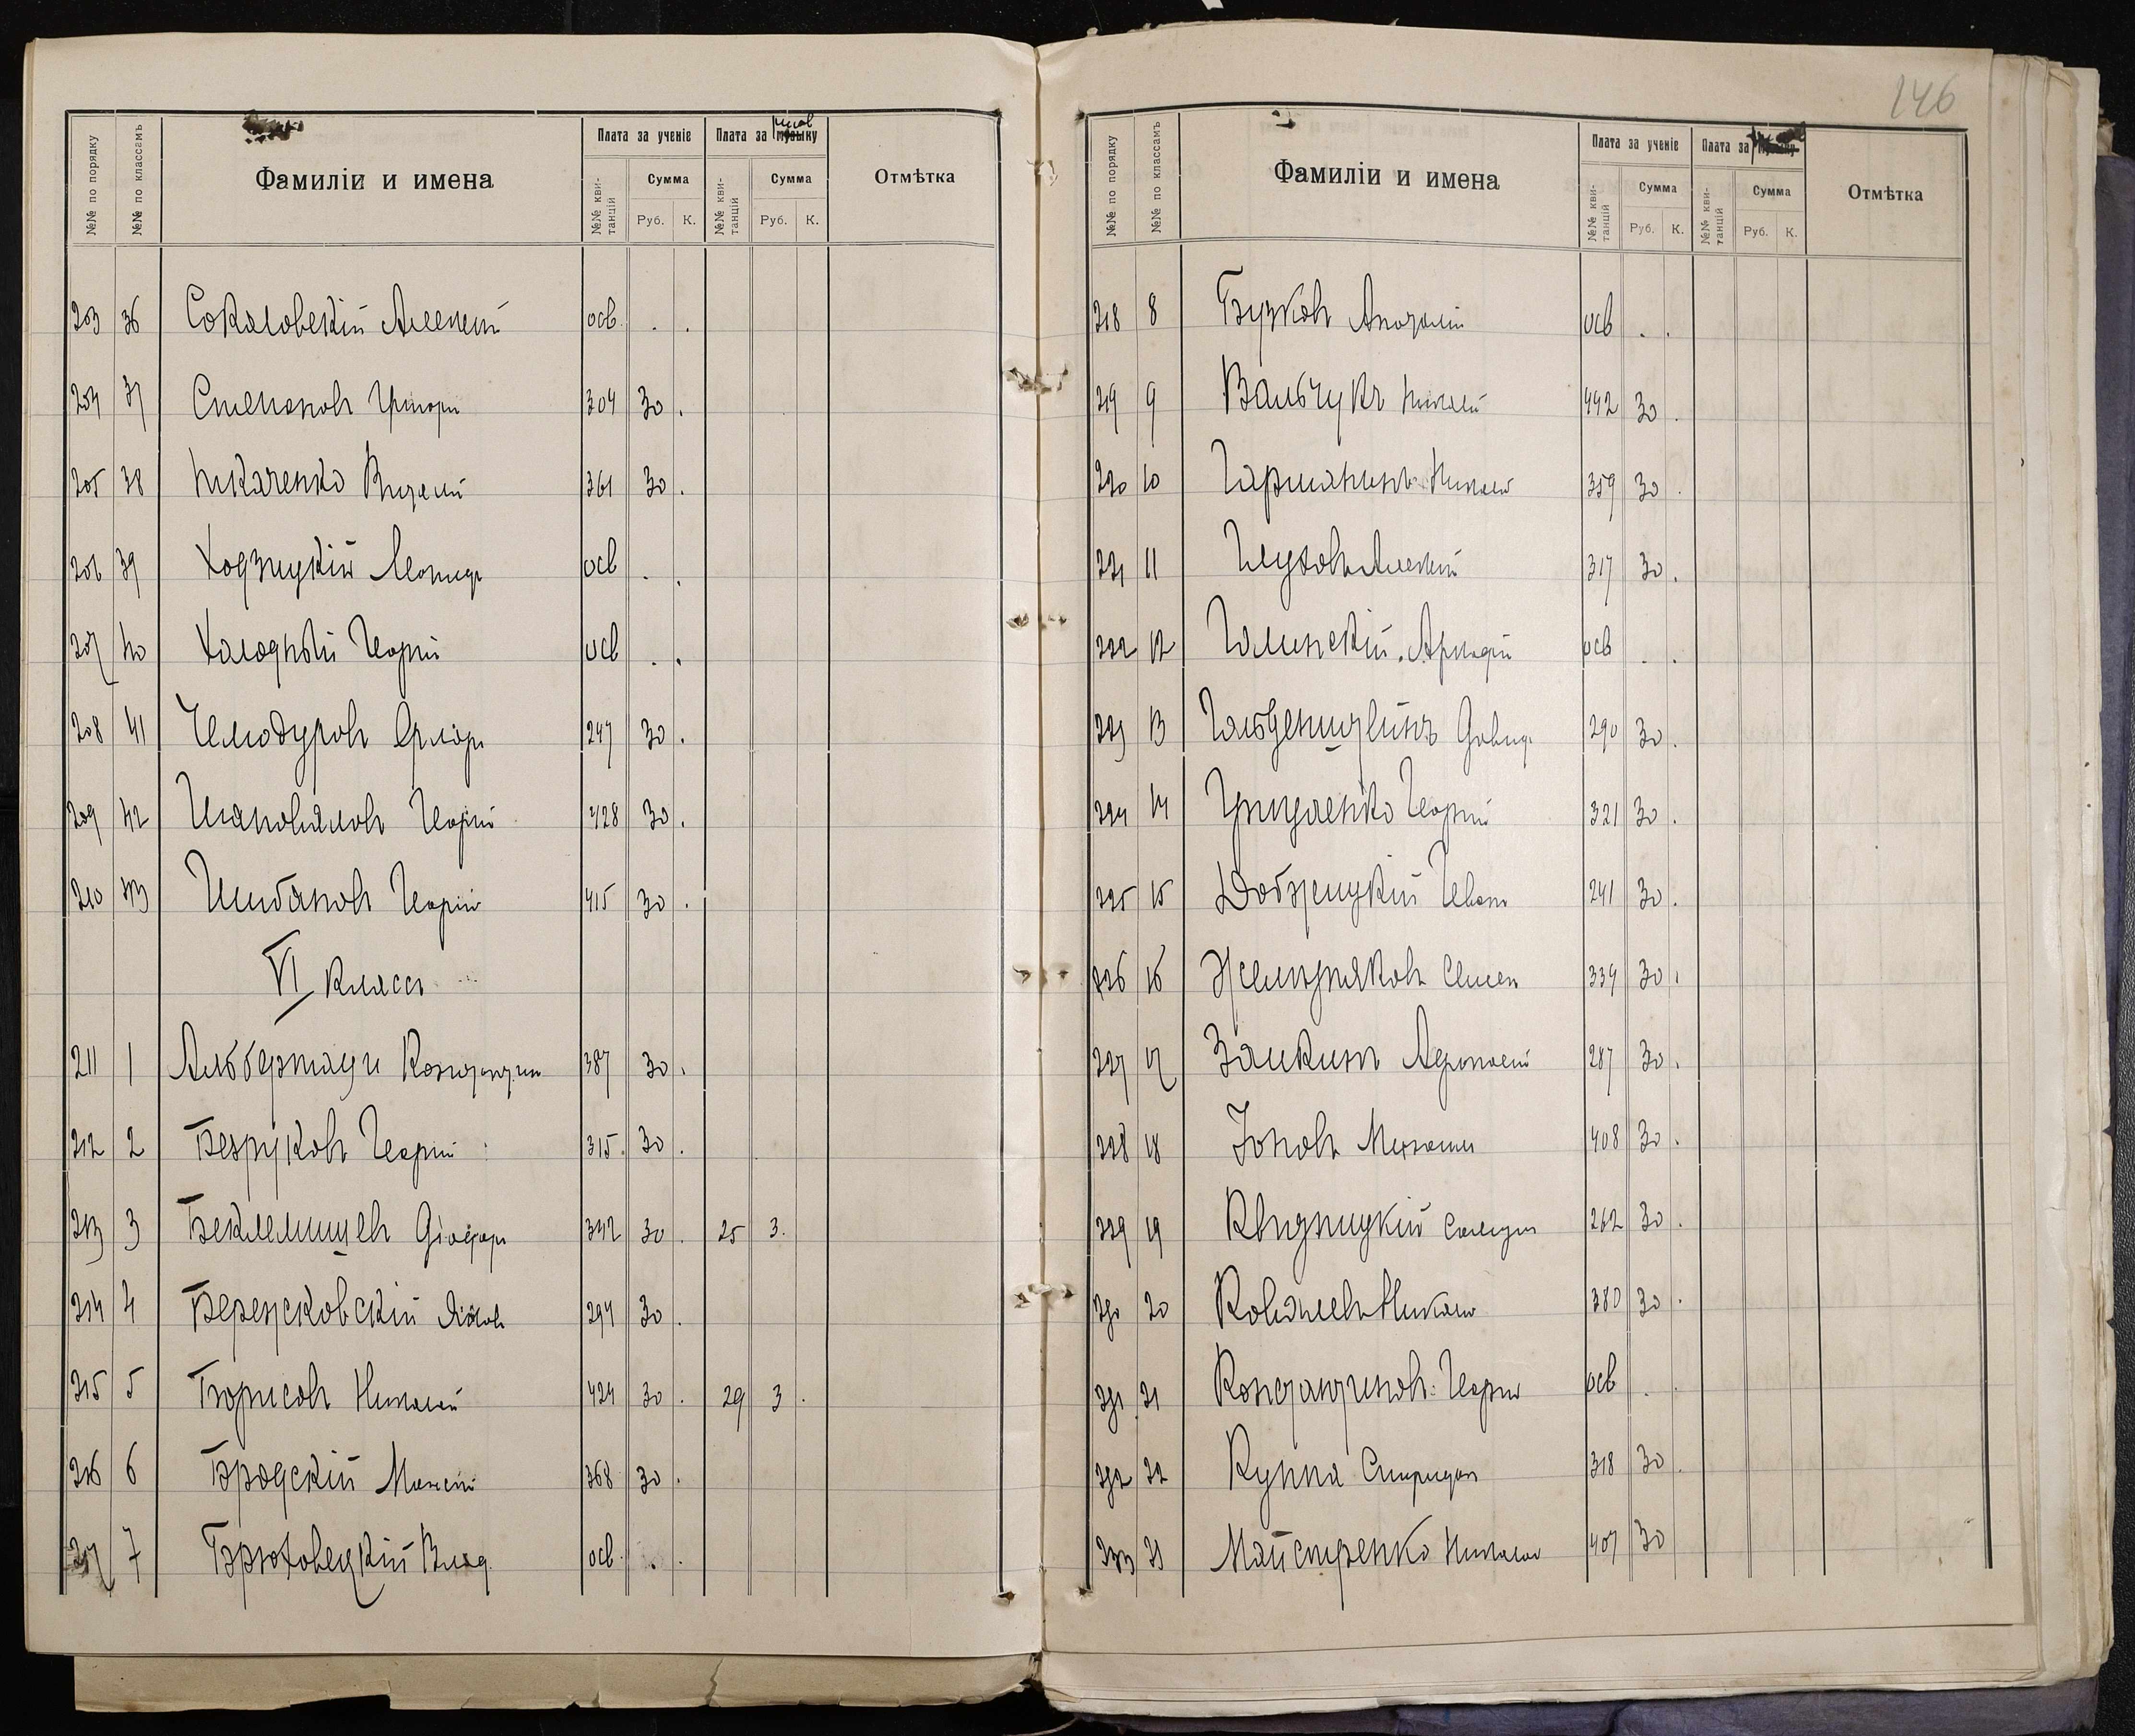 146
№№ по порядку №№ по классамъ Фамиліи и имена Плата за ученіе Плата за музыку Отмѣтка
№№ квитанцій Сумма №№ квитанцій Сумма
Руб. К. Руб. К.
203 36 Соколовскій Алексей осв. . .
204 37 Степановъ Григорій 304 30 .
205 38 Ткаченко Виталій 361 30 .
206 39 Ходзицкій Леонидъ осв . .
207 40 Холодный Георгій осв . .
208 41 Чемодуровъ 247 30 .
209 42 Шаповаловъ Георгій 428 30 .
210 43 Шибановъ Георгій 415 30 .
VI классъ
211 1 Альбертауи Константин 387 30 .
212 2 Безруковъ Георгій 315. 30 .
213 3 Беклемишевъ Ѳіодоръ 342 30 . 25 3 .
214 4 Яковъ 294 30 .
215 5 Борисовъ Николай 424 30 . 29 3 .
216 6 Бродскій Моисей 368 30 .
217 7 Брюховецкій Влад. осв . .
№№ по порядку №№ по классамъ Фамиліи и имена Плата за ученіе Плата за Отмѣтка
№№ квитанцій Сумма №№ квитанцій Сумма
Руб. К. Руб. К.
218 8 Бузковъ Анатолій осв . .
219 9 Вальчукъ Николай 442 30 .
220 10 Гарманинъ Николай 359 30 .
221 11 Глуховъ Алексей 317 30 .
222 12 Голинскій Аркадій осв . .
223 13 Гольденштейнъ Давидъ 290 30 .
224 14 Гриценко Георгій 321 30 .
225 15 Добржицкій Иванъ 241 30 .
226 16 Желѣзняковъ Семен 339 30 .
227 17 Заикинъ Афанасій 287 30 .
228 18 Іоновъ Михаилъ 408 30 .
229 19 Квитницкій 262 30 .
230 20 Ковалевъ Николай 380 30 .
231 21 Константиновъ Георгій осв . .
232 22 Куппа Спиридон 318 30 .
233 23 Майстренко Николай 407 30